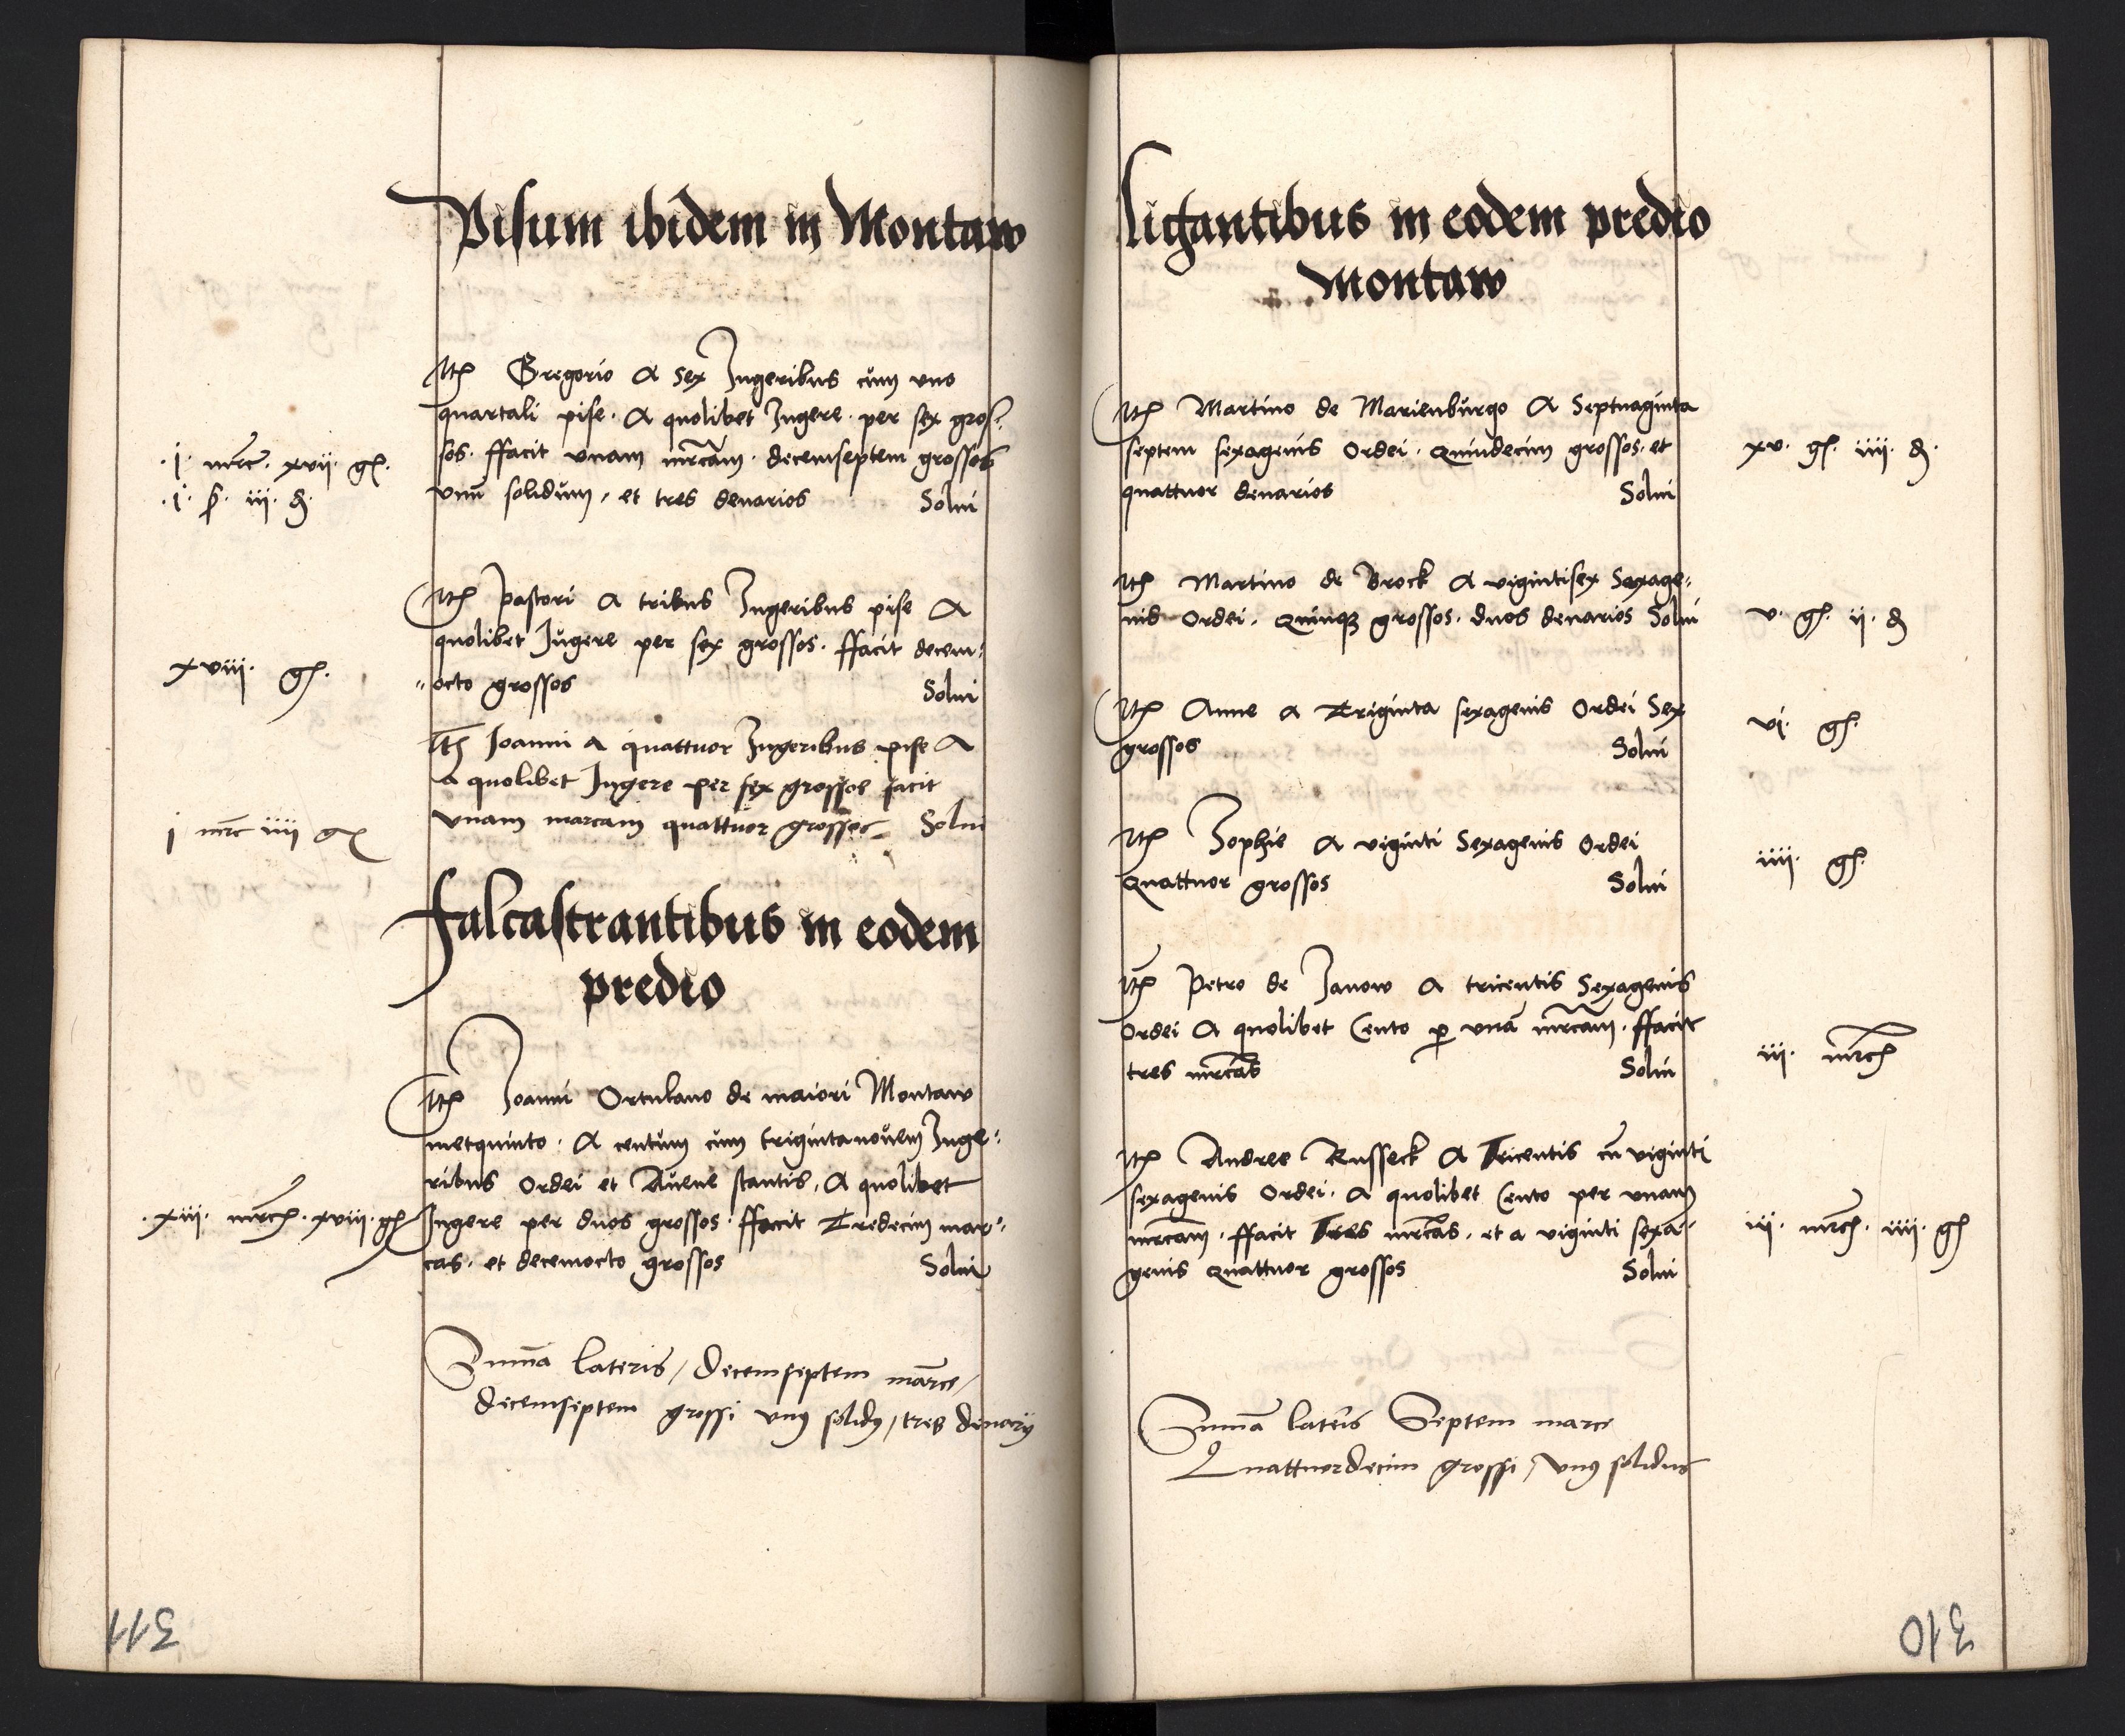 Pisum ibidem in Montaw
Itm Gregorio a sex Jugeribus cum uno
quartali pise. A quolibet Jugere. per sex gros=
sos. ffacit vnam mrcam. decemseptem grossos
.i. mrc. xvii. gs.
vnu solidum, et tres denarios Solui
.i. s. iii. d.
Itm pastori a tribus Jugeribus pise A
quolibet Jugere per sex grossos. ffacit decem=
xviii. gs.
"octo grossos Solui
Itm Joanni a quattuor Jugeribus pise A
a quolibet Jugere per sex grossos facit
i mrc iiii gs
vnam marcam quattuor grossos Solui
falcastrantibus in eodem
predio
Itm Joanni Ortulano de maiori Montaw
metquinto. A centum cum trigintanouem Juge=
ribus Ordei et Auene stantis, A quolibet
.xiii. mrcs. xviii. gs
Jugere per duos grossos. ffacit Tredecim mar=
cas. et decemocto grossos Solui
Suma lateris / decemseptem marce /
decemseptem grossi vnus solidus / tres denarij
311
ligantibus in eodem predio
Montaw
Itm Martino de Marienburgo A Septuaginta
septem sexagenis Ordei. Quindecim grossos. et
xv. gs. iiii. d.
quattuor denarios Solui
Itm Martino de Brock A vigintisex Sexage=
nis Ordei. Quinqz grossos. duos denarios Solui
v. gs. ii. d
Itm Anne a Triginta sexagenis Ordei Sex
vi. gs.
grossos Solui
Itm Zophie A viginti Sexagenis Ordei
iiii. gs.
Quattuor grossos Solui
Itm Petro de Janow A tricentis Sexagenis
Ordei A quolibet Cento p vna mrcam. ffacit
iii. mrcs
tres mrcas Solui
Itm Andree Russeck A Tricentis cu viginti
sexagenis Ordei. A quolibet Cento per vnam
mrcam. ffacit Tres mrcas. et a viginti sexa=
iii. mrcs. iiii. gs
genis Quattuor grossos Solui
Suma lateris Septem marce
Quattuordecim grossi / vnus solidus
310